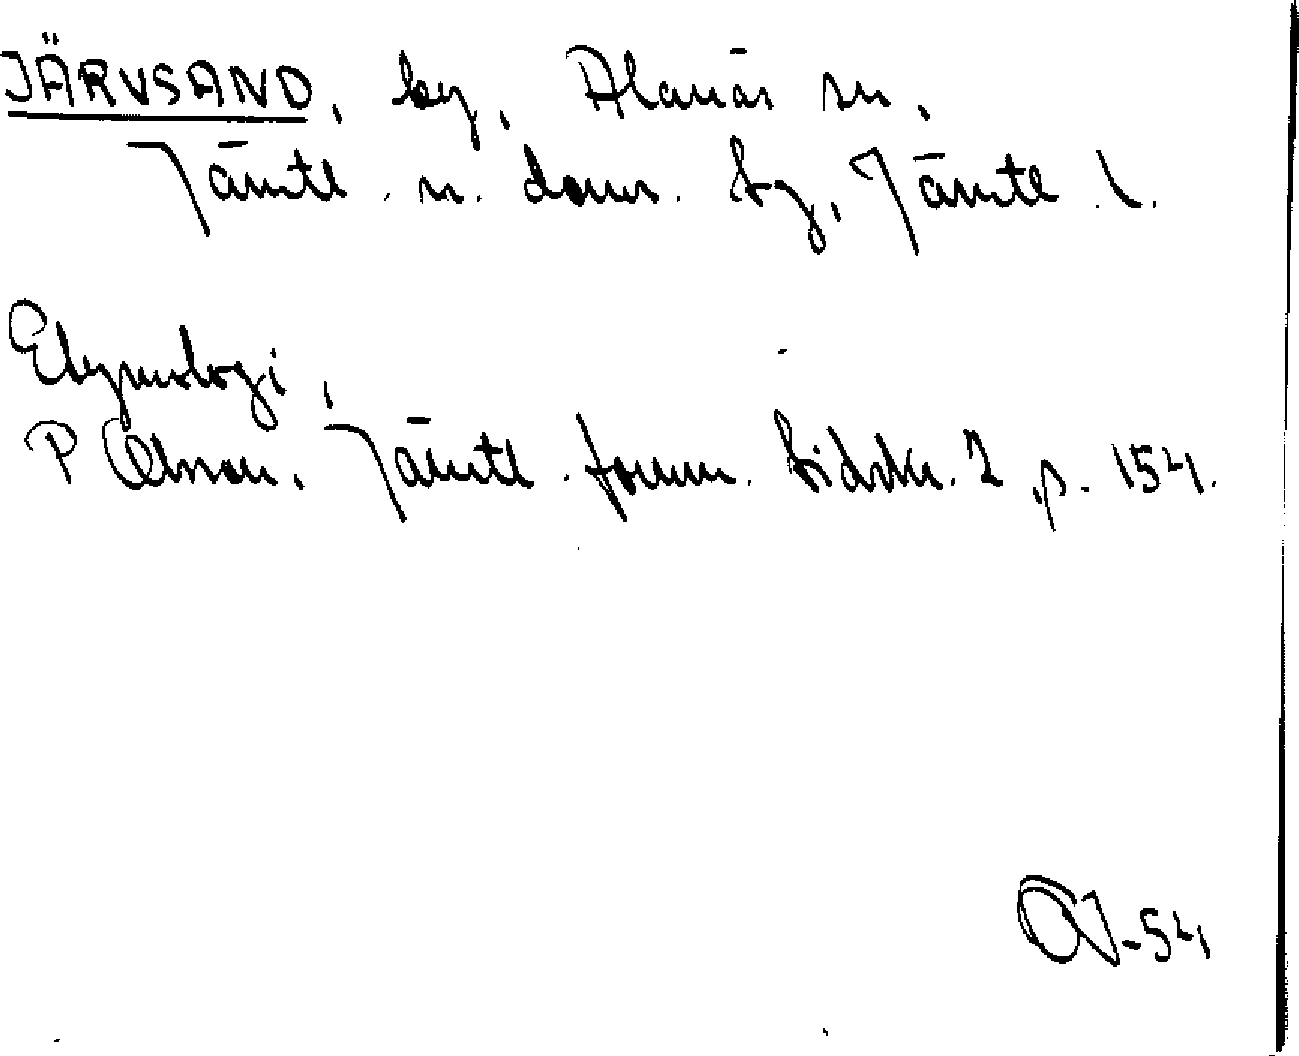 JÄRVSAND, by, Alanäs sn,
Jämtl. n. doms. tg, Jämtl. l.
Etymologi,
P Olsson, Jämtl. fornm. tidskr. 2, p. 154.
OJ-54